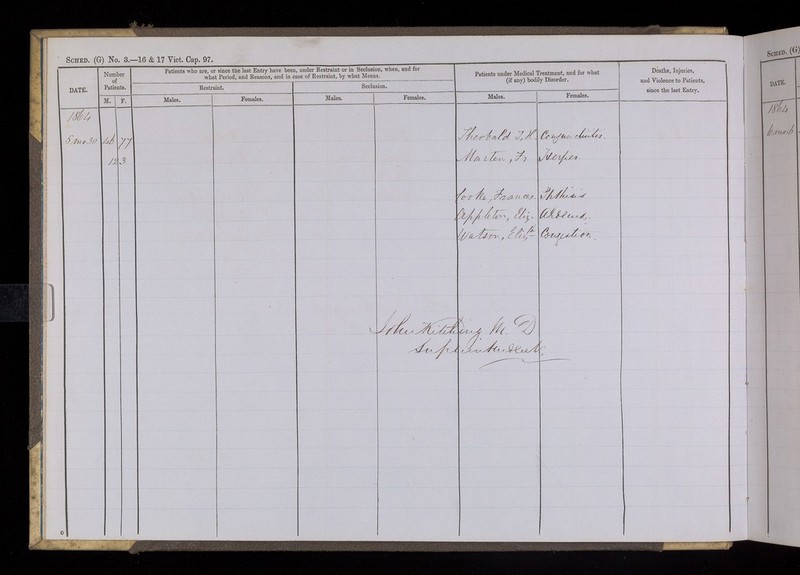 SCHED. (G) No. 3.—16 & 17 Vict. Cap. 97.
DATE.
Number of Patients.
M. F.
Patients who are, or since the last Entry have been, under Restraint or in Seclusion, when, and for
what Period, and Reasons, and in case of Restraint, by what Means.
Restraint. Seclusion.
Males. Females. Males. Females.
Patients under Medical Treatment, and for what
(if any) bodily Disorder.
Males. Females.
Deaths, Injuries,
and Violence to Patients,
since the last Entry.
1864
5 mo 30 46 77 Theobald J. H. Conjunctivitis.
123 Marten, Fs Herpes
Cooke, Frances Phthisis
Appleton, Eliz. Abscess.
Watson, Elizth Congestion.
John Kitching M. D
Superintendent.
SCHED. (G)
DATE.
1864
6 mo 6